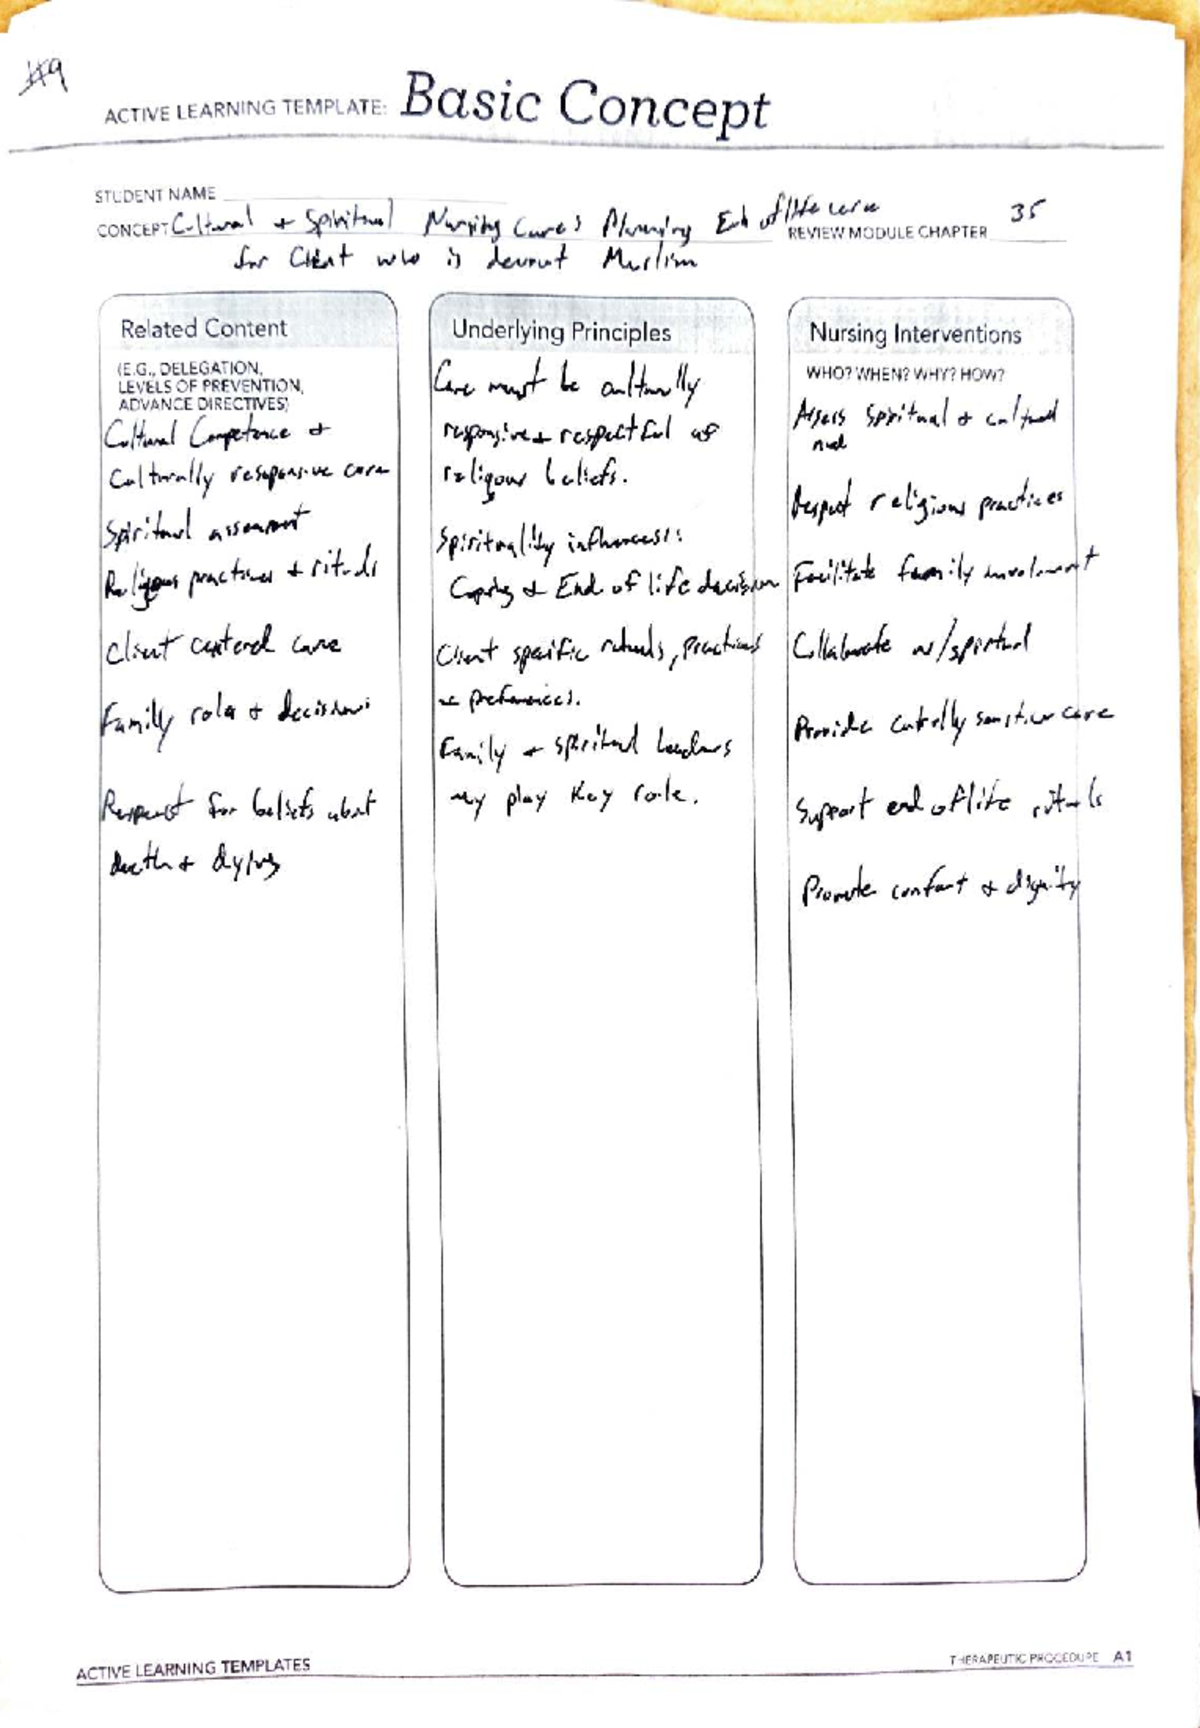 #9
ACTIVE LEARNING TEMPLATE: Basic Concept
STUDENT NAME
CONCEPT Cultural + Spiritual Nursing Care: Planning End of life care
REVIEW MODULE CHAPTER 35
for Client who is devout Muslim
Related Content
(E.G., DELEGATION,
LEVELS OF PREVENTION,
ADVANCE DIRECTIVES)
Cultural Competence +
Culturally resapansive care
Spiritual assessment
Religous practices + rituals
Client centered care
Family role + decisions
Respect for beliefs about
death + dying
Underlying Principles
Care must be culturally
responsive + respectful of
religous beliefs.
Spirituality influences:
Coping + End of life decision
Client specific rituals, practices
+ preferences.
Family + spiritual leaders
may play key role.
Nursing Interventions
WHO? WHEN? WHY? HOW?
Assess Spiritual + cultural
need
Respect religious practices
Facilitate family involvement
Collaborate w/spiritual
Provide culturally sensitive care
Support end of life rituals
Promote comfort + dignity
ACTIVE LEARNING TEMPLATES
THERAPEUTIC PROCEDURE A1